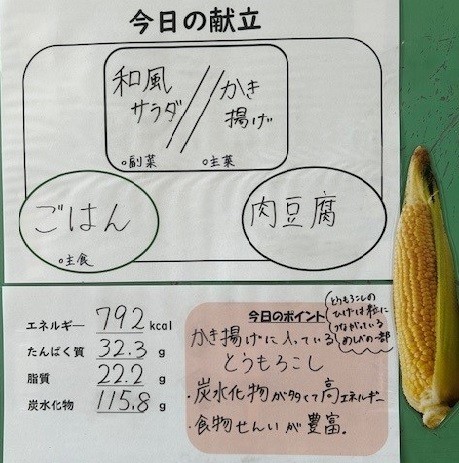 今日の献立
和風
サラダ
かき
揚げ
○副菜
○主菜
ごはん
○主食
肉豆腐
エネルギー 792 kcal
たんぱく質 32.3 g
脂質 22.2 g
炭水化物 115.8 g
今日のポイント
かき揚げに入っている
とうもろこし
・炭水化物が多くて高エネルギー
・食物せんいが豊富。
とうもろこしの
ひげは粒に
つながっている
めしべの一部